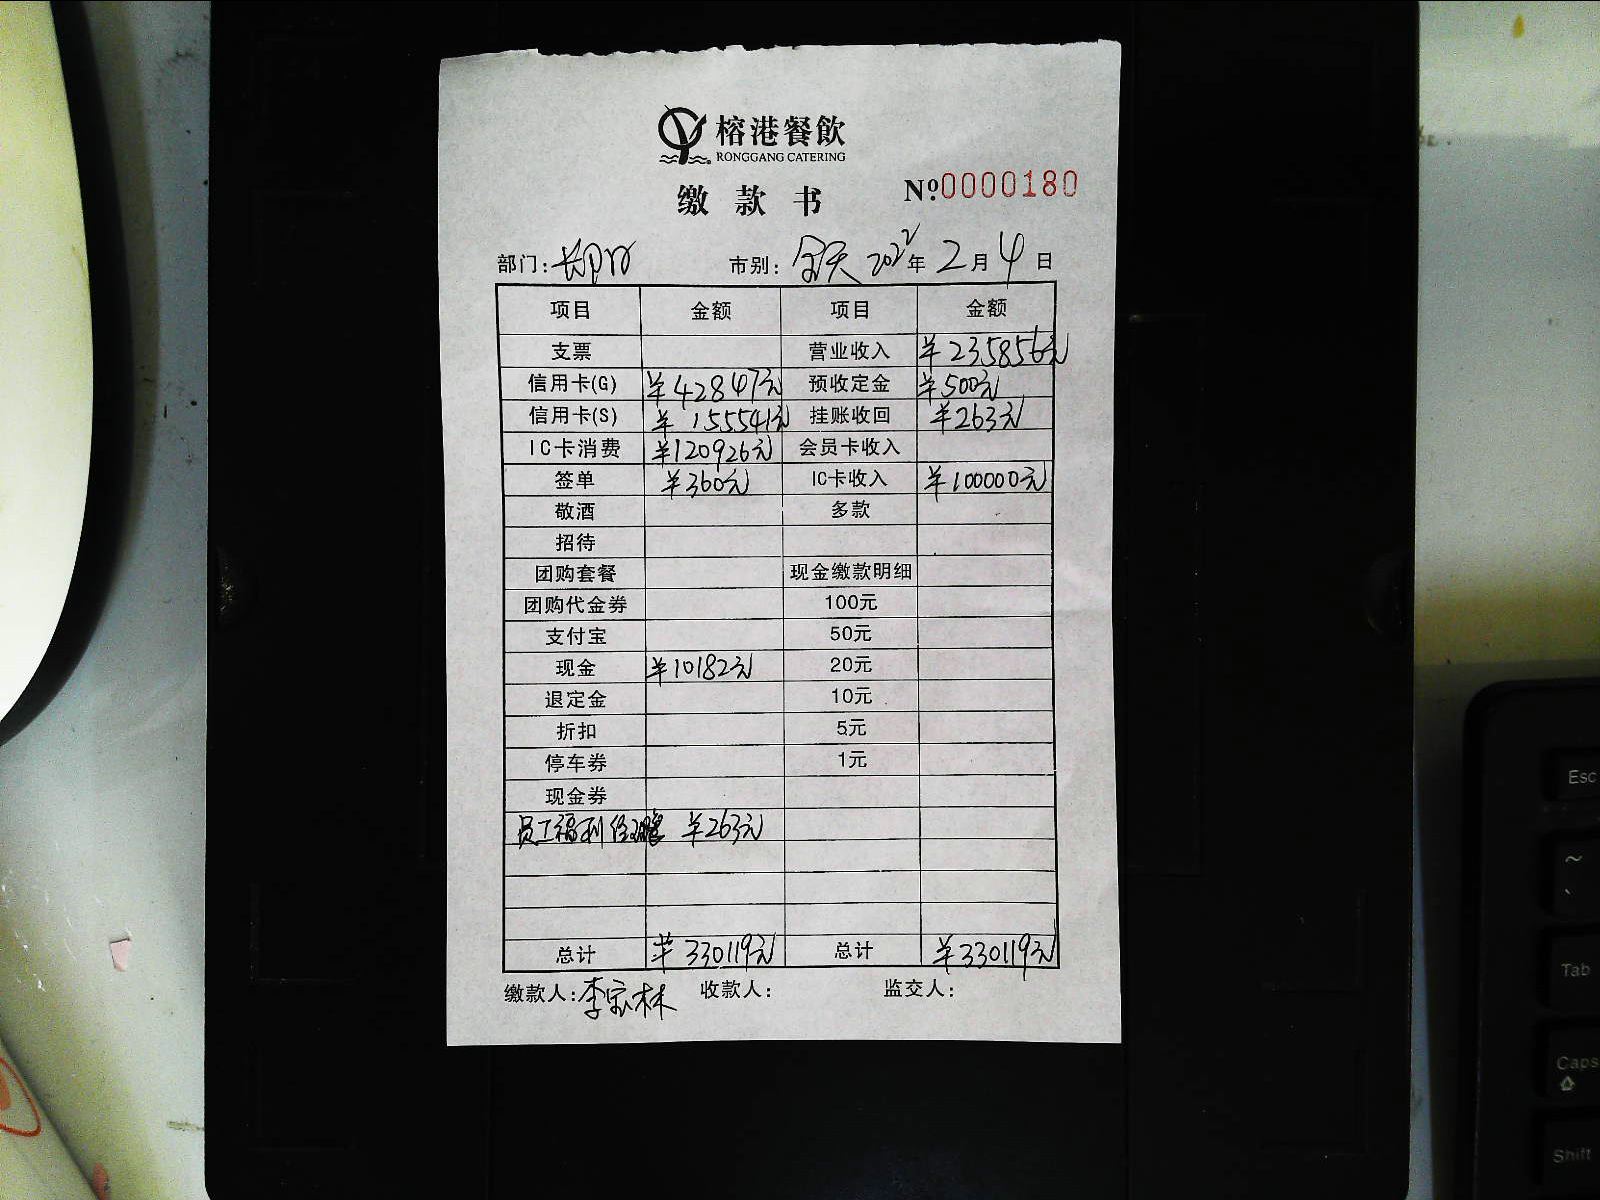 榕港餐飲
RONGGANG CATERING
缴款书 №0000180
部门: 市别: 全天 2022年 2月 4日
项目 金额 项目 金额
支票 营业收入 ¥235856元
信用卡(G) ¥42847元 预收定金 ¥500元
信用卡(S) ¥155541元 挂账收回 ¥263元
IC卡消费 ¥120926元 会员卡收入
签单 ¥360元 IC卡收入 ¥100000元
敬酒 多款
招待
团购套餐 现金缴款明细
团购代金券 100元
支付宝 50元
现金 ¥10182元 20元
退定金 10元
折扣 5元
停车券 1元
现金券
员工福利 ¥263元
总计 ¥330119元 总计 ¥330119元
缴款人: 李宏林 收款人: 监交人:
Esc
~
`
Tab
Caps
Shift